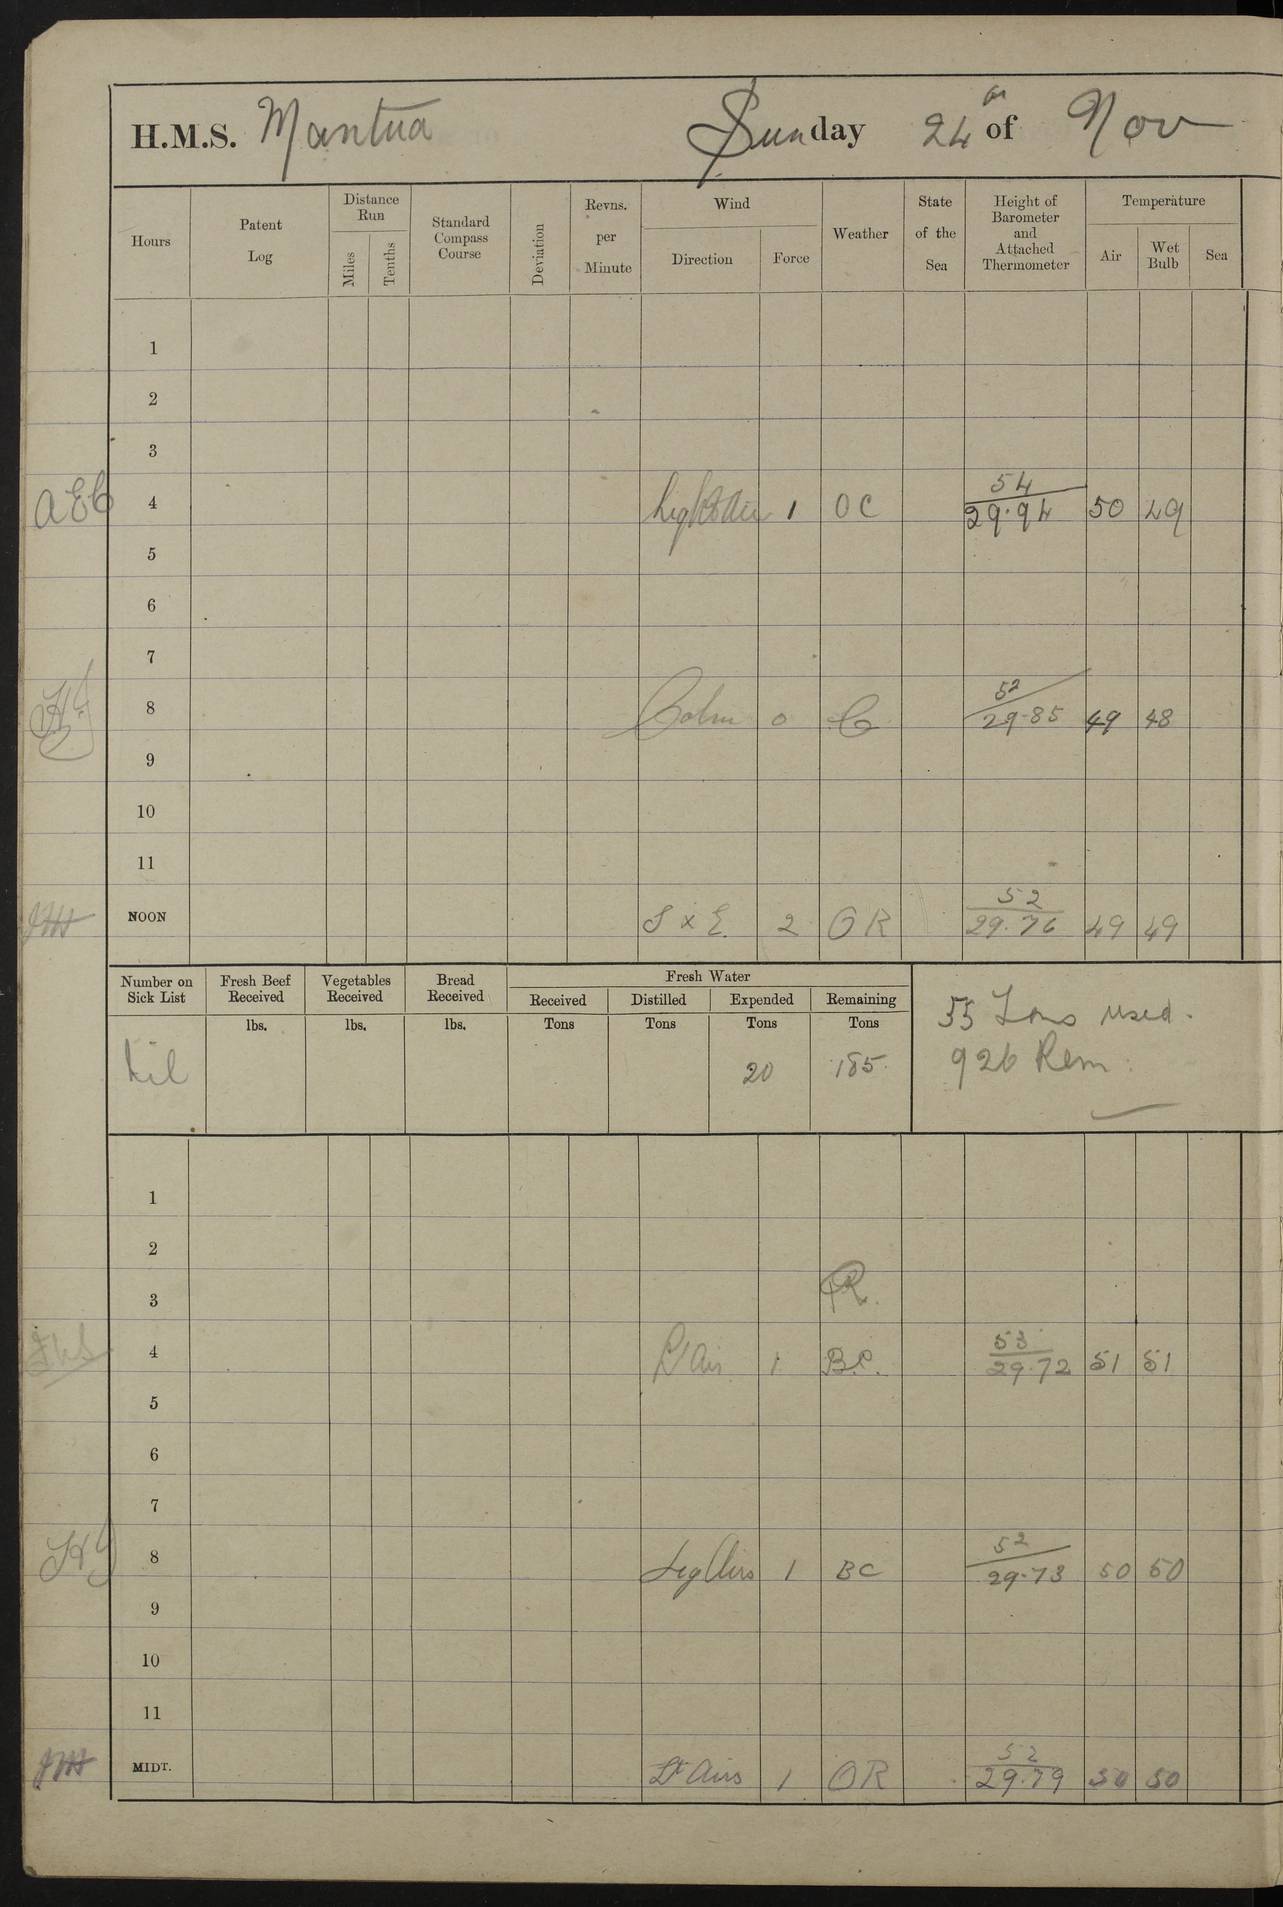 H.M.S. Mantua Sunday 24th of Nov
Hours Patent Log Distance Run Miles Tenths Standard Compass Course Deviation Revns. per Minute Wind Direction Force Weather State of the Sea Height of Barometer and Attached Thermometer Temperature Air Wet Bulb Sea
1
2
3
AEC 4 Light Air 1 OC 54 29.94 50 49
5
6
7
HJ 8 Calm 0 C 52 29.85 49 48
9
10
11
NOON S x E. 2 OR 52 29.76 49 49
Number on Sick List Fresh Beef Received Vegetables Received Bread Received Fresh Water
Received Distilled Expended Remaining
lbs. lbs. lbs. Tons Tons Tons Tons
Nil 20 185
55 Tons used.
926 Rem.
1
2
3 R.
4 Lt Air 1 B.C. 53 29.72 51 51
5
6
7
HJ 8 Lig Airs 1 BC 52 29.73 50 50
9
10
11
MIDT. Lt Airs 1 OR 52 29.79 50 50